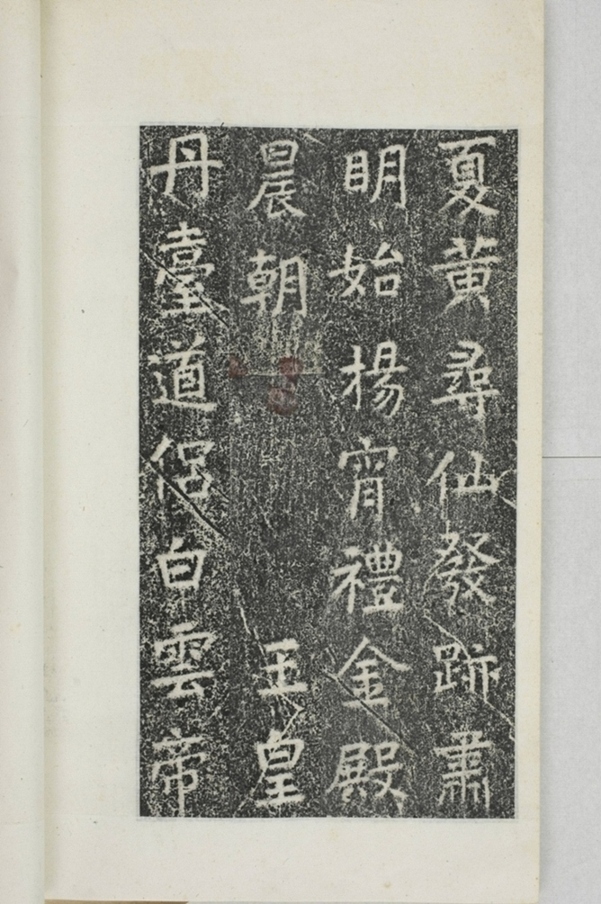 夏黄尋仙發跡肅
明始楊宵禮金殿
晨朝 玉皇
丹臺道侶白雲帝